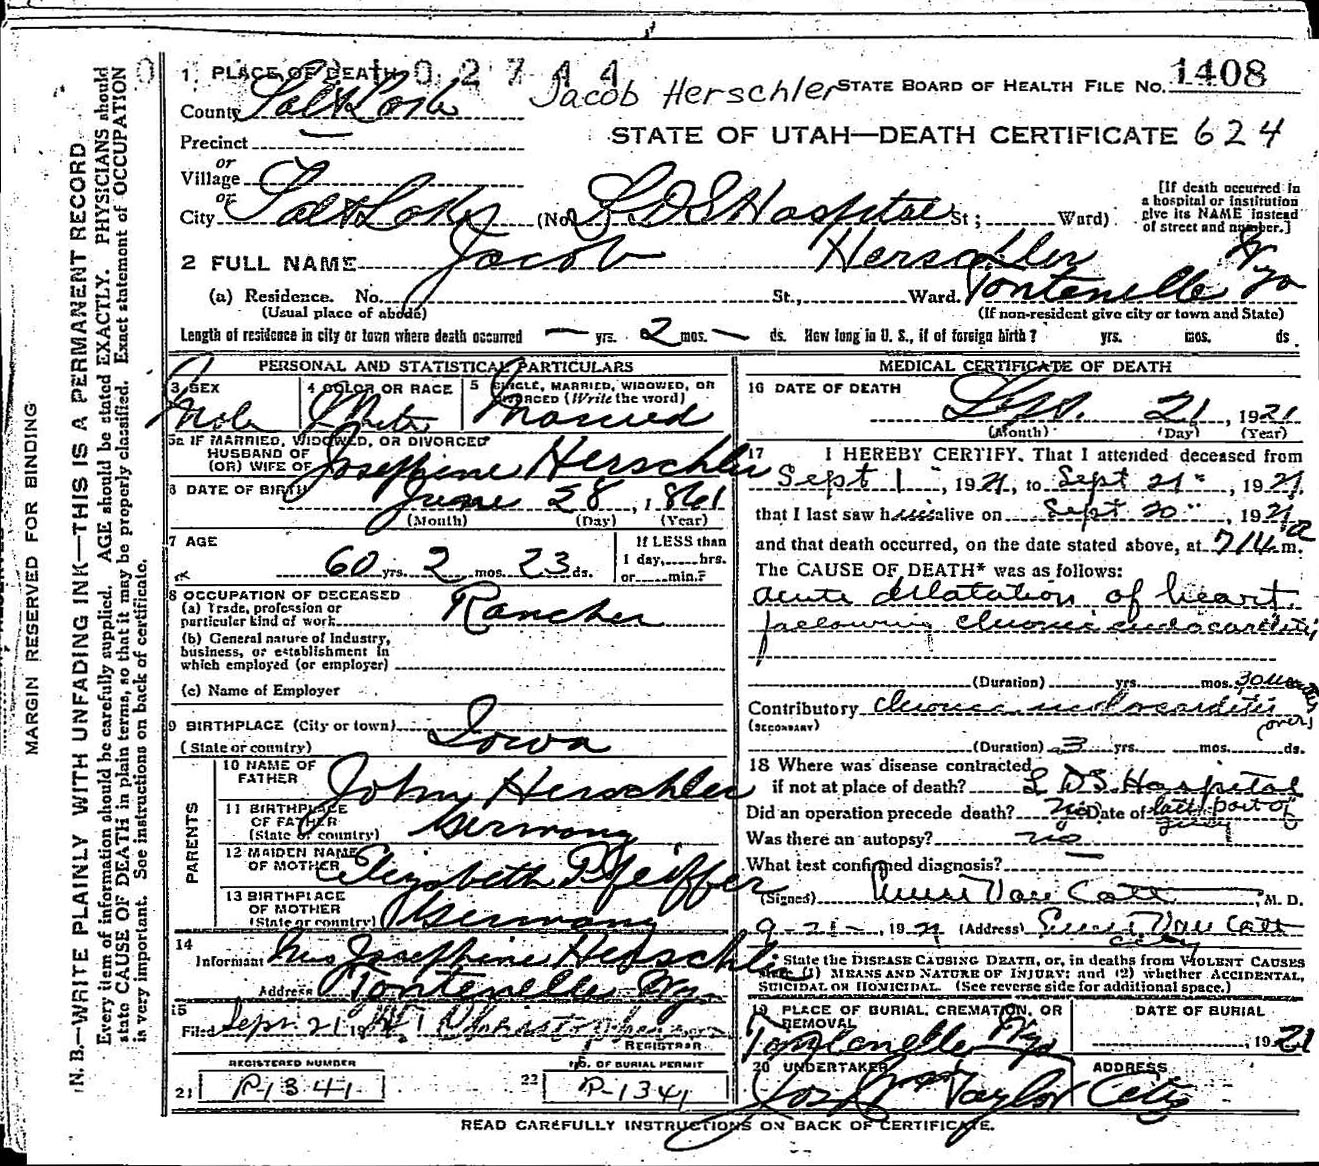 1 PLACE OF DEATH 0 2 7 4 4
Jacob Herschler STATE BOARD OF HEALTH FILE NO. 1408
County Salt Lake
STATE OF UTAH—DEATH CERTIFICATE 624
Precinct
or
Village
or
City Salt Lake (No. L D S Hospital St; Ward)
[If death occurred in
a hospital or institution
give its NAME instead
of street and number.]
2 FULL NAME Jacob Herschler
(a) Residence. No. St., Ward. Fontenelle Wyo
(Usual place of abode) (If non-resident give city or town and State)
Length of residence in city or town where death occurred — yrs. 2 mos. — ds. How long in U. S., if of foreign birth? yrs. mos. ds.
PERSONAL AND STATISTICAL PARTICULARS
3 SEX
Male
4 COLOR OR RACE
White
5 SINGLE, MARRIED, WIDOWED, OR
DIVORCED (Write the word)
Married
5a IF MARRIED, WIDOWED, OR DIVORCED
HUSBAND OF
(OR) WIFE OF Josephine Herschler
6 DATE OF BIRTH June 28, 1861
(Month) (Day) (Year)
7 AGE
60 yrs. 2 mos. 23 ds.
If LESS than
1 day, hrs.
or min.?
8 OCCUPATION OF DECEASED
(a) Trade, profession or
particular kind of work Rancher
(b) General nature of industry,
business, or establishment in
which employed (or employer)
(c) Name of Employer
9 BIRTHPLACE (City or town) Iowa
(State or country)
PARENTS
10 NAME OF
FATHER John Herschler
11 BIRTHPLACE
OF FATHER
(State or country) Germany
12 MAIDEN NAME
OF MOTHER Elizabeth Pfeiffer
13 BIRTHPLACE
OF MOTHER
(State or country) Germany
14
Informant Mrs Josephine Herschler
Address Fontenelle Wyo.
15
Filed Sept 21 19
REGISTRAR
REGISTERED NUMBER
21 P-1341
NO. OF BURIAL PERMIT
22 P-1341
MEDICAL CERTIFICATE OF DEATH
16 DATE OF DEATH
Sept. 21, 1921
(Month) (Day) (Year)
17 I HEREBY CERTIFY, That I attended deceased from
Sept 1", 1921, to Sept 21", 1921,
that I last saw him alive on Sept 20", 1921
and that death occurred, on the date stated above, at 7/14 a m.
The CAUSE OF DEATH* was as follows:
acute dilatation of heart
following chronic endocarditis
(Duration) yrs. mos. 30 minutes
Contributory chronic endocarditis
(SECONDARY) (over)
(Duration) 3 yrs. mos. ds.
18 Where was disease contracted
if not at place of death? L D S Hospital
Did an operation precede death? Date of latter part of
July
Was there an autopsy? no
What test confirmed diagnosis? —
(Signed) Van Cott, M. D.
9-21-, 1921 (Address) Van Cott
City
* State the DISEASE CAUSING DEATH, or, in deaths from VIOLENT CAUSES
state (1) MEANS AND NATURE OF INJURY; and (2) whether ACCIDENTAL,
SUICIDAL OR HOMICIDAL. (See reverse side for additional space.)
19 PLACE OF BURIAL, CREMATION, OR
REMOVAL
Fontenelle Wyo
DATE OF BURIAL
1921
20 UNDERTAKER
Jos Wm Taylor
ADDRESS
City
READ CAREFULLY INSTRUCTIONS ON BACK OF CERTIFICATE.
MARGIN RESERVED FOR BINDING
N. B.—WRITE PLAINLY WITH UNFADING INK—THIS IS A PERMANENT RECORD
Every item of information should be carefully supplied. AGE should be stated EXACTLY. PHYSICIANS should
state CAUSE OF DEATH in plain terms, so that it may be properly classified. Exact statement of OCCUPATION
is very important. See instructions on back of certificate.